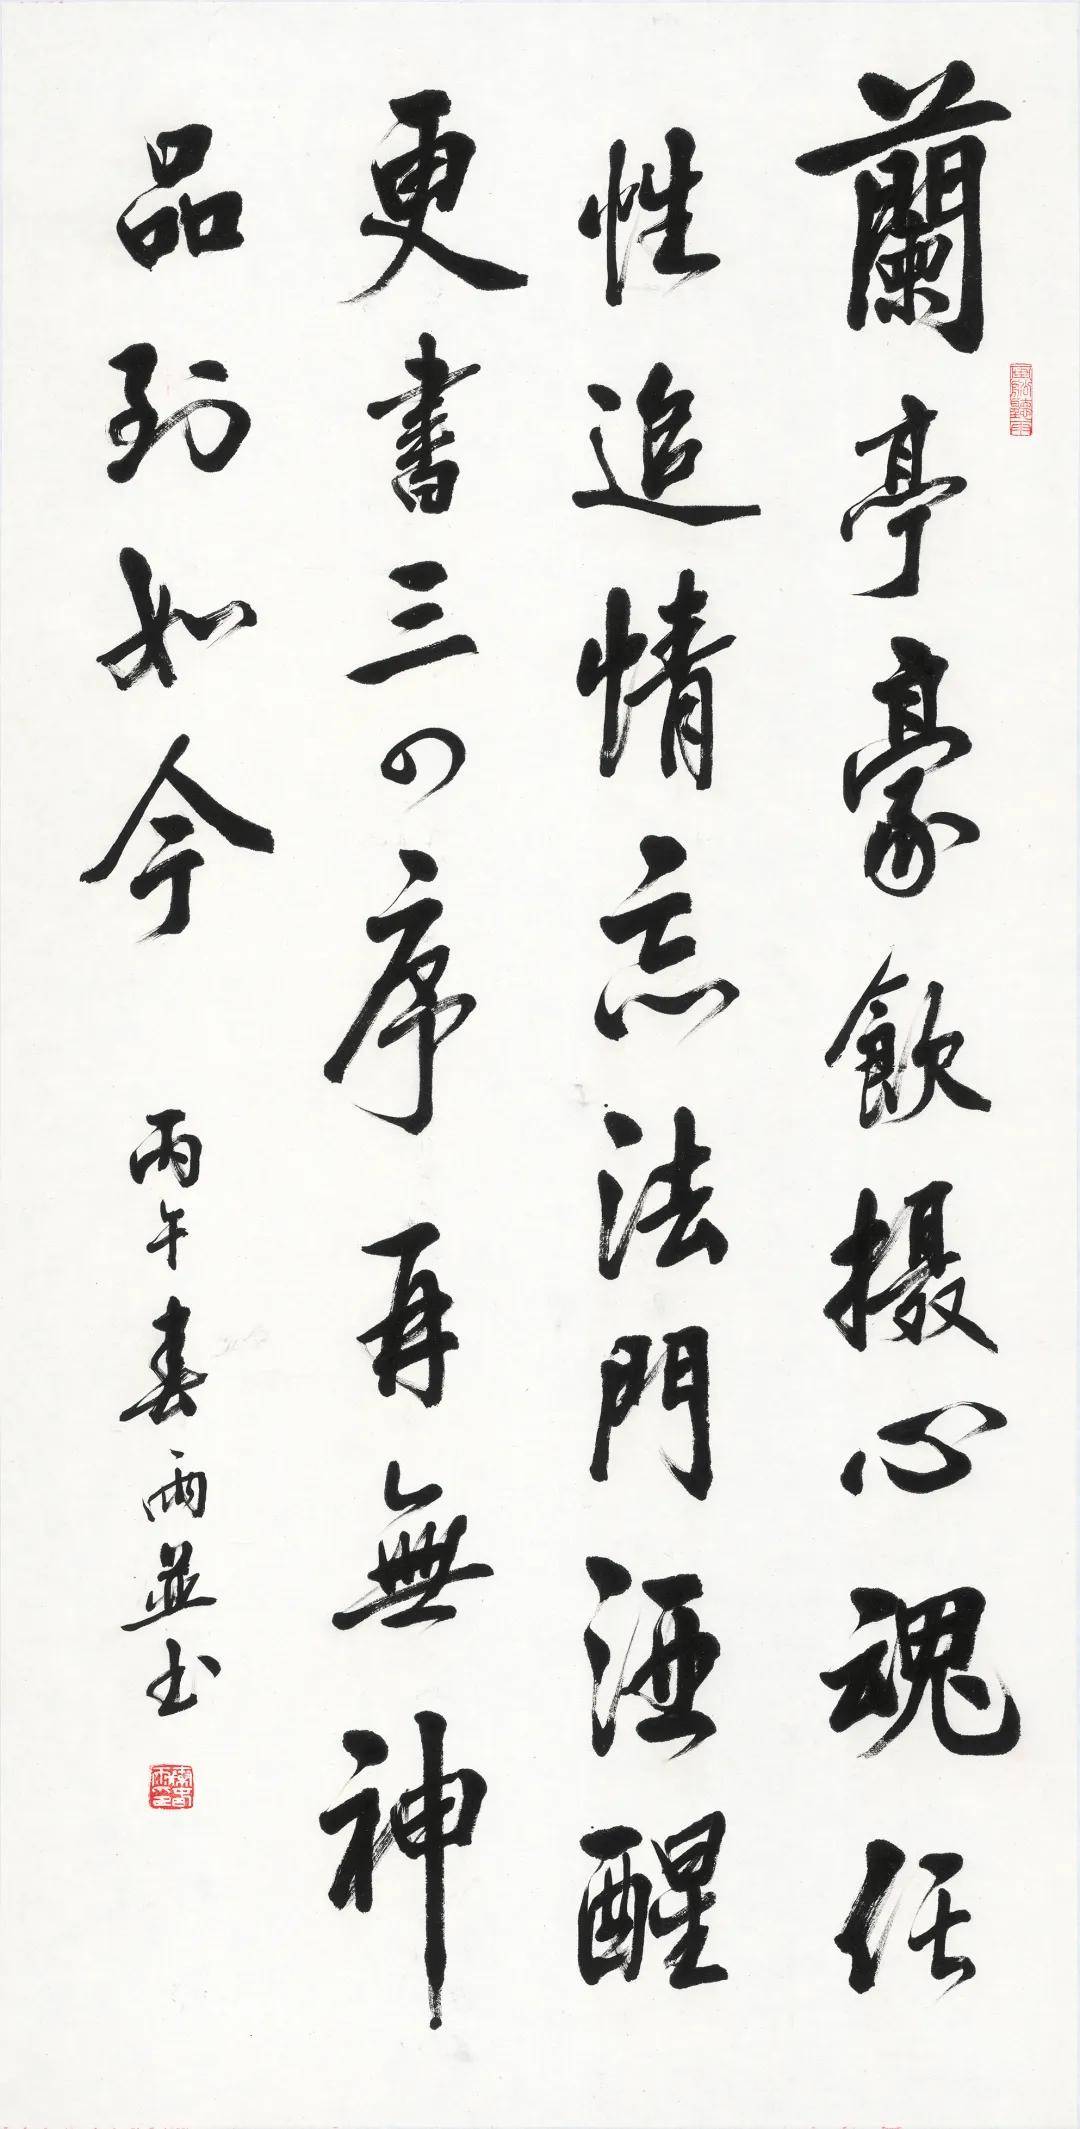 蘭亭豪飲摄心魂任
性追情忘法門酒醒
更書三四序再無神
品到如今
丙午春雨並书